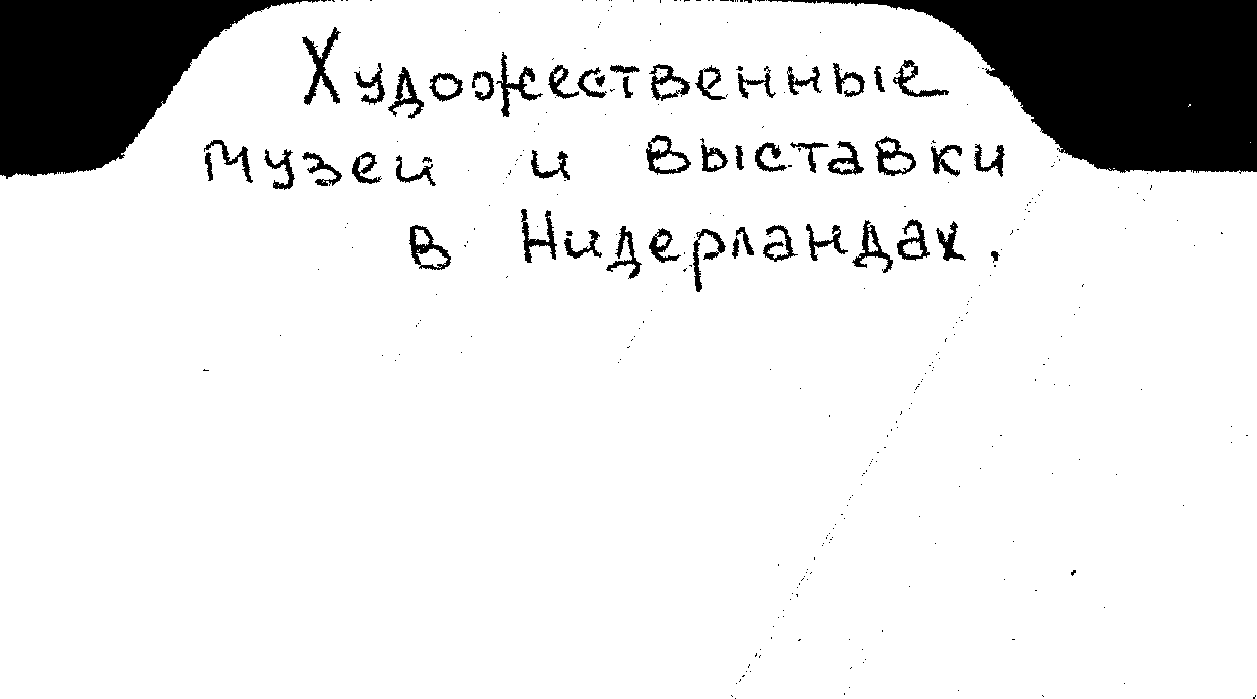 Художественные
музеи и выставки
в Нидерландах.